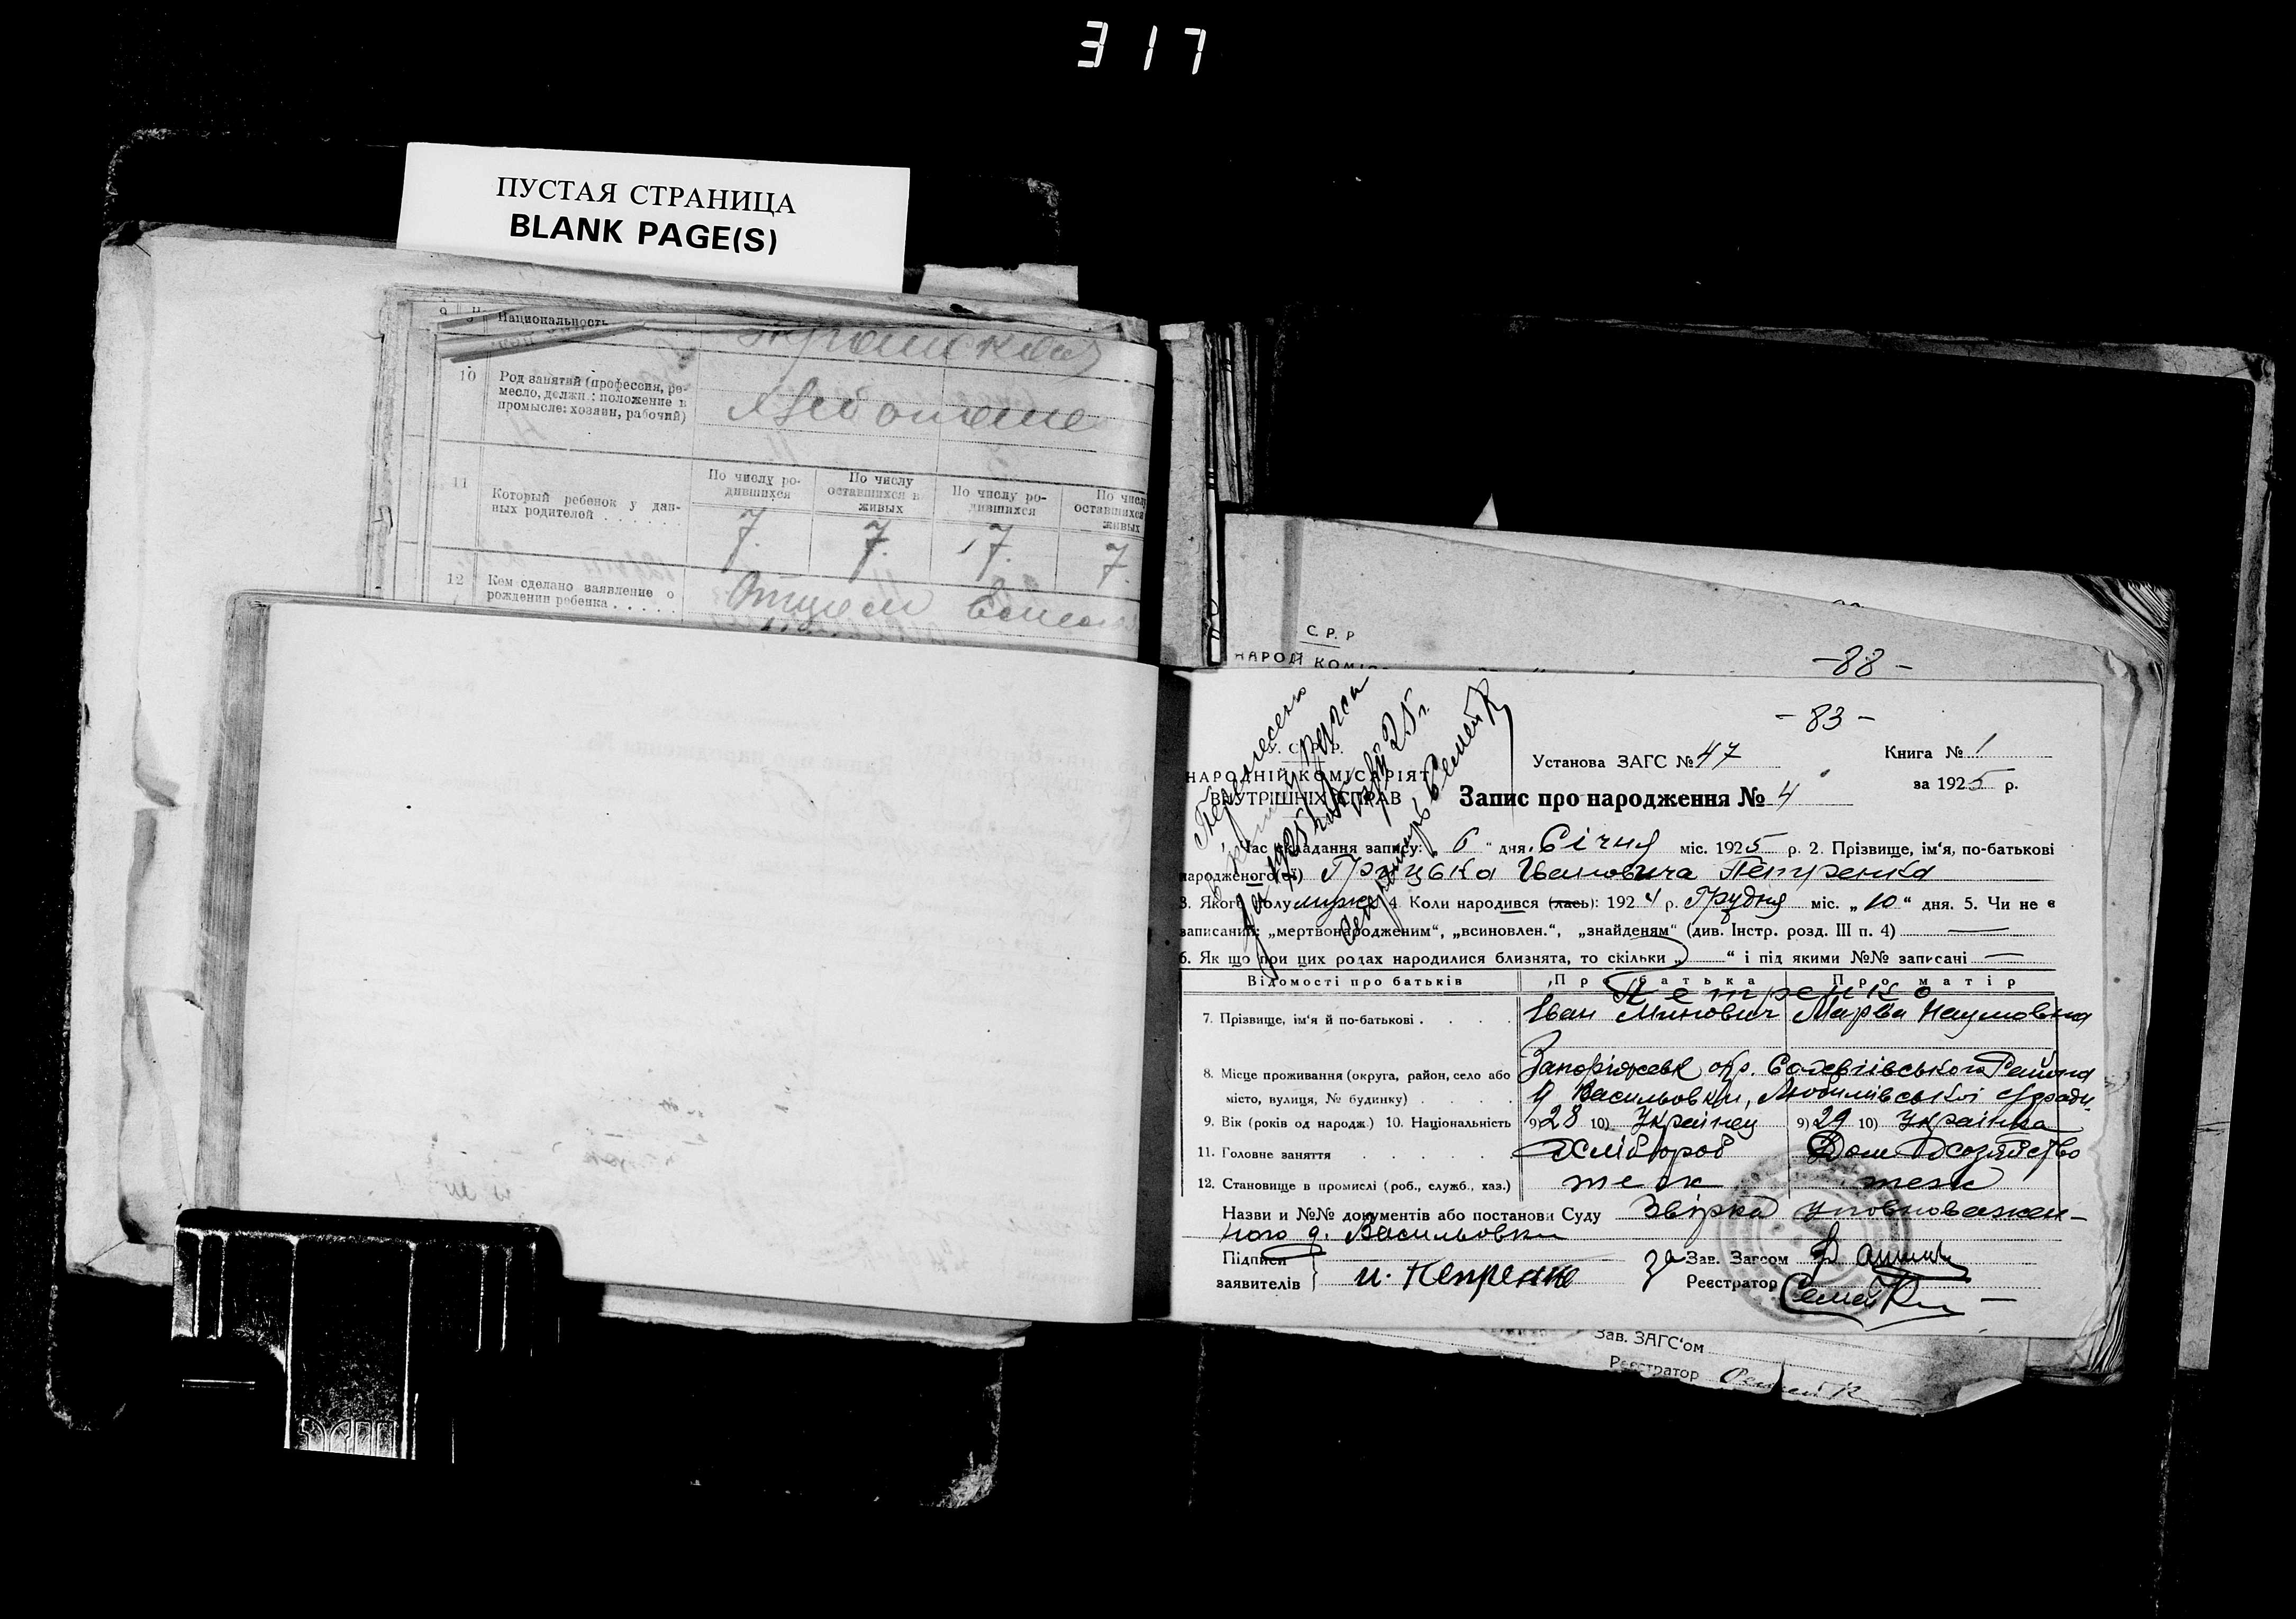 317
ПУСТАЯ СТРАНИЦА
BLANK PAGE(S)
Национальность
10 Род занятий (профессия, ре-
месло, должн.: положение в
промысле: хозяин, рабочий)
11 Который ребенок у дан-
ных родителей . . . . . .
По числу ро-
дившихся
По числу
оставшихся в
живых
По числу ро-
дившихся
По числу
оставшихся
живых
7. 7. 7. 7.
12 Кем сделано заявление о
рождении ребенка . . . . . Отцом
С. Р. Р
НАРОД КОМІС
-88-
-83-
Перенесено
в книгу
за 1925
25 г.
Семейк
С. Р. Р.
НАРОДНІЙ КОМІСАРІЯТ
ВНУТРІШНІХ СПРАВ
Установа ЗАГС № 47
Книга № 1
за 1925 р.
Запис про народження № 4
Час складання запису: „6“ дня Січня міс. 1925 р. 2. Прізвище, ім'я, по-батькові
народженого(ої) Грицька Івановича Петренка
3. Якого полу муж. 4. Коли народився (лась): 1924 р. Грудня міс. „10“ дня. 5. Чи не є
записаний: „мертвонародженим“, „всиновлен.“, „знайденям“ (див. Інстр. розд. III п. 4) —
6. Як що при цих родах народилися близнята, то скільки „ “ і під якими №№ записані —
Відомості про батьків Про батька Про матір
Петренко
7. Прізвище, ім'я й по-батькові . . . . Іван Минович Марва Наумовна
8. Місце проживання (округа, район, село або Запоріжськ окр. Софіївського Району
місто, вулиця, № будинку) . . . . Васильовки,
9. Вік (років од народж.) 10. Національність 9) 28 10) Українец 9) 29 10) Українка
11. Головне заняття . . . . . Хлібороб Дом Хозяйство
12. Становище в промислі (роб., служб., хаз.)
Назви и №№ документів або постанови Суду Звірка Уповноважен-
ного д. Васильовки
Підписи
заявителів И. Петренко
за Зав. Загсом
Реєстратор Семейк
Зав. ЗАГС'ом
Реєстратор